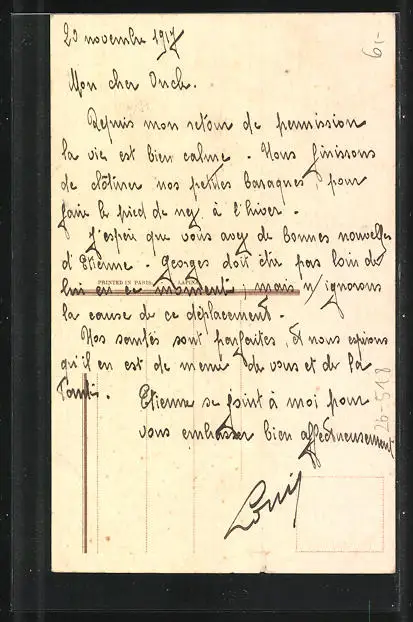 20 novembre 1917
6,-
Mon cher Oncle.
Depuis mon retour de permission
la vie est bien calme. Nous finissons
de clôturer nos petites baraques, pour
faire le pied de nez à l'hiver.
J'espère que vous avez de bonnes nouvelles
d'Etienne. Georges doit être pas loin de
PRINTED IN PARIS LAPINA
lui en ce moment; mais n/ ignorons
la cause de ce déplacement.
Nos santés sont parfaites, et nous espérons
qu'il en est de même de vous et de la
Tante. Etienne se joint à moi pour
vous embrasser bien affectueusement
26-518
Louis